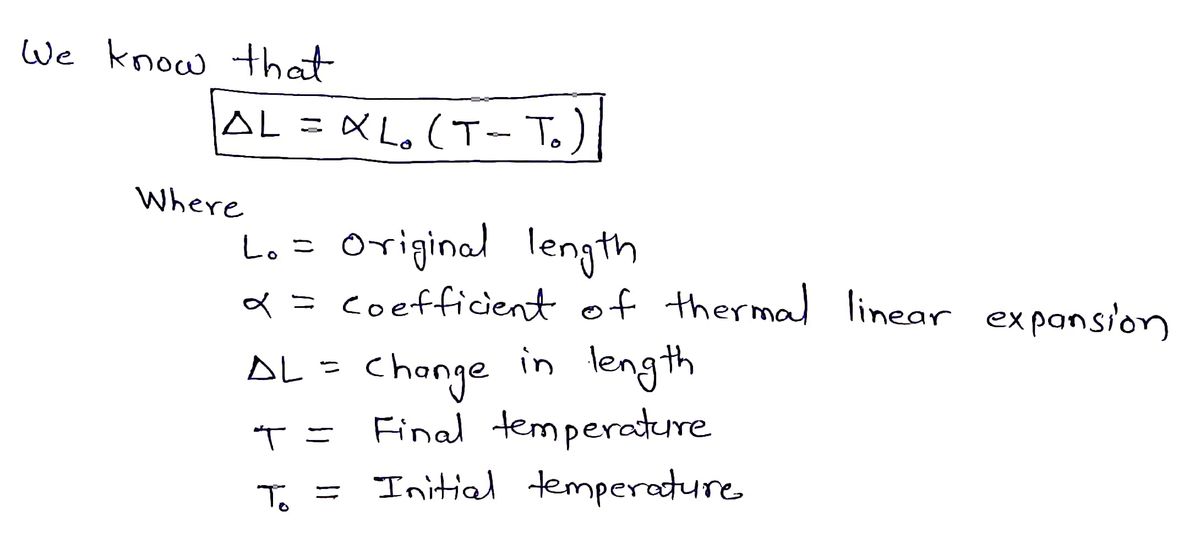 We know that
ΔL = αL₀ (T - T₀)
Where
L₀ = Original length
α = coefficient of thermal linear expansion
ΔL = Change in length
T = Final temperature
T₀ = Initial temperature